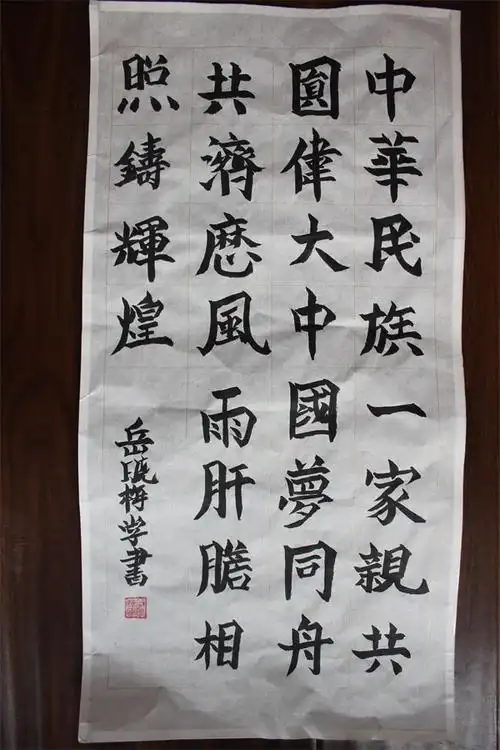 中華民族一家親共
圓偉大中國夢同舟
共濟歷風雨肝膽相
照鑄輝煌
岳晓梅学書